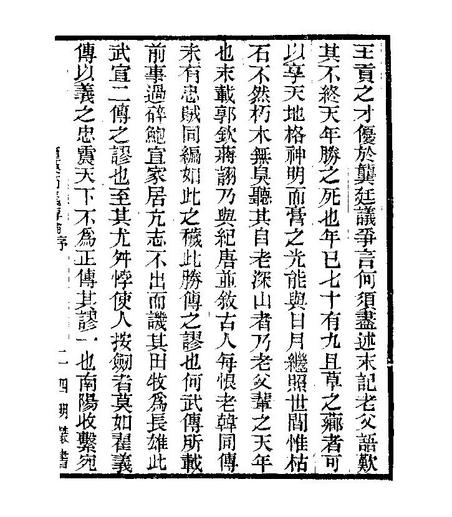 王貢之才優於龔廷議爭言何須盡述末記老父語歎
其不終天年勝之死也年已七十有九且草之薌者可
以享天地格神明而膏之光能與日月繼照世間惟枯
石不然朽木無臭聽其自老深山者乃老父輩之天年
也末載郭欽蔣詡乃與紀唐並敘古人每恨老韓同傳
未有忠賊同編如此之穢此勝傳之謬也何武傳所載
前事過碎鮑宣家居亢志不出而譏其田牧為長雄此
武宣二傳之謬也至其尤舛悖使人按劒者莫如翟義
傳以義之忠震天下不為正傳其謬一也南陽收繫宛
二 四明叢書